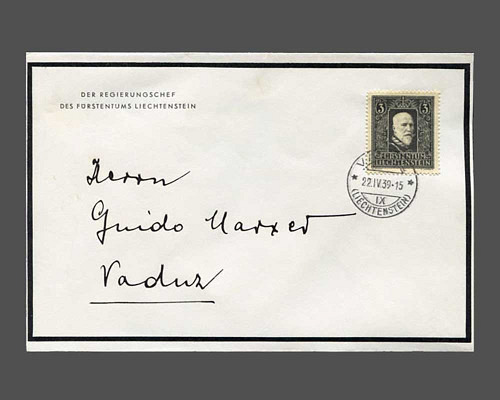 DER REGIERUNGSCHEF
DES FÜRSTENTUMS LIECHTENSTEIN
3 3
FÜRSTENTUM
LIECHTENSTEIN
22.IV.39-15
IX
(LIECHTENSTEIN)
Herrn
Guido Marxer
Vaduz